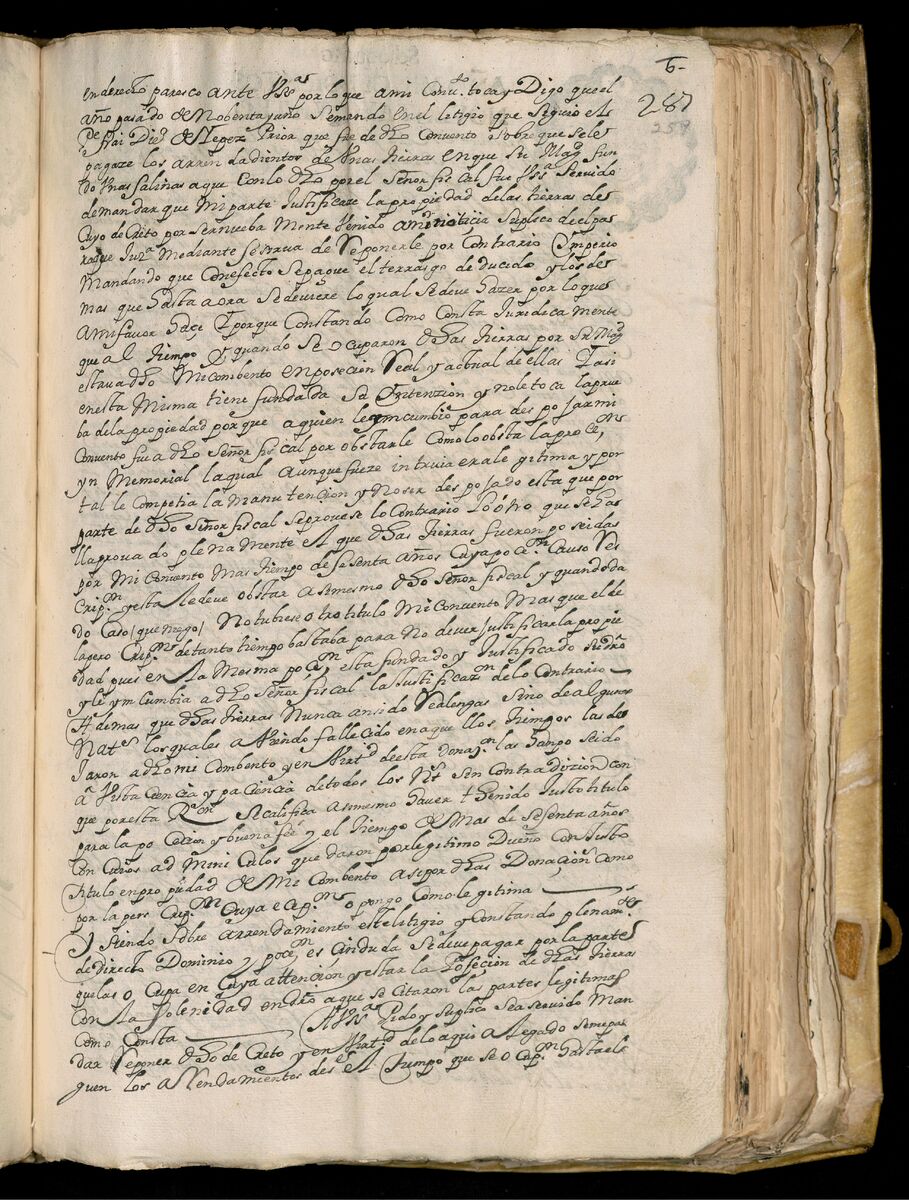 6-
287
259
en derecto paresco ante Vssas por lo que a mi Convto toca y Digo que el
año pasado de Nobenta y uno Semando en el litigio qe siguio el
Pe frai Diego de Yepez Prior que fue de dho Convento sobre que se le
pagaze los arrendadientos de Vnas tierras en que Su Magd fun
do Vnas Salinas a que con lo dho por el Señor fiscal fue Vssa Servido
demandar que Mi parte Justificare la propiedad de las tierras de
Cuyo de Creto por ser nueba Mente Venido ami noticia Suplico de el pa
ra que Jura Mediante se sirva de Reponerle por Contrario Imperio
Mandando que Con efecto Se pague el terrasgo de ducido y los de
mas que hasta aora Se deviere lo qual Se deve hazer por lo que
a mi favor haçe Y porque Constando Como Consta Juredica mente
que al tiempo y quando Se o Cuparon dhas tierras por Su Magd
estava dho Mi Combento en posecion Real y actual de ellas Y asi
en esta Misma tiene fundada Sa Yntenzion y no le toca la prue
ba de la propiedad porque a quien le yncumbio para des po Jar mi
Convento fue a dho Señor fiscal por obstarle Como lo obsta la proc
y yn Memorial la qual Aunque fueze in truia era le gitima y por
tal le Competia la Manu tencion y No ser des po jado esta que por
parte de dho Señor fiscal Se provese lo Contrario Lo otro que se ha
lla prova do plena Mente el que dhas tierras fueron po seidas
por Mi Convento Mas tiempo de Sesenta años Cuya po Con Causo Res
Cripon y esta le deve obstar asimesmo dho Señor fiscal y quando da
do Caso (que niego) No tubiese otro titulo Mi Convento Mas que el de
la pero Cripon de tanto tiempo bastaba para No dever Justificar la propie
dad pues en la Mesma po Con, esta fundado y Justificado
y le yn Cumbia a dho Señor fiscal la Justificazon de lo Contrario
A demas que dhas tierras Nunca an sido Realengas Sino de algunos
Nats los quales a Viendo fallecido en a que llos tiempos las de
Jaron a dho mi Combento y en Virtd de esta donazon las han po Seido
a Vista Ciencia y pa Ciencia de todos los Sin Contradizion con
que por esta Ron Se califica asimesmo haver t henido Justo titulo
para la po Cecion y buena feé y el tiempo de Mas de Sesenta años
con Cuios ad Mini Culos que daron por legitimo Dueño Con Justo
titulo en pro piedad de Mi Combento asi por dhas Donaçion Como
por la pers Cripon Cuya e o pongo Como le gitima
Y Siendo Sobre arrendamiento este litigio y Constando plenamte
de directo Dominio y pocon es Cin duda Se deve pagar por la parte
que las o Cupa en Cuya attencion y estar la Poseción de dhas tierras
Con la Solenidad en dro a que se Citaron las partes legitimas
Como Consta A Vssas Pido y Suplico Sea servido Man
dar Reponer dho de Creto y en Virtd de lo aqui a legado Se me pa
guen los arrendamientos des el tiempo que se o Cupn hasta el